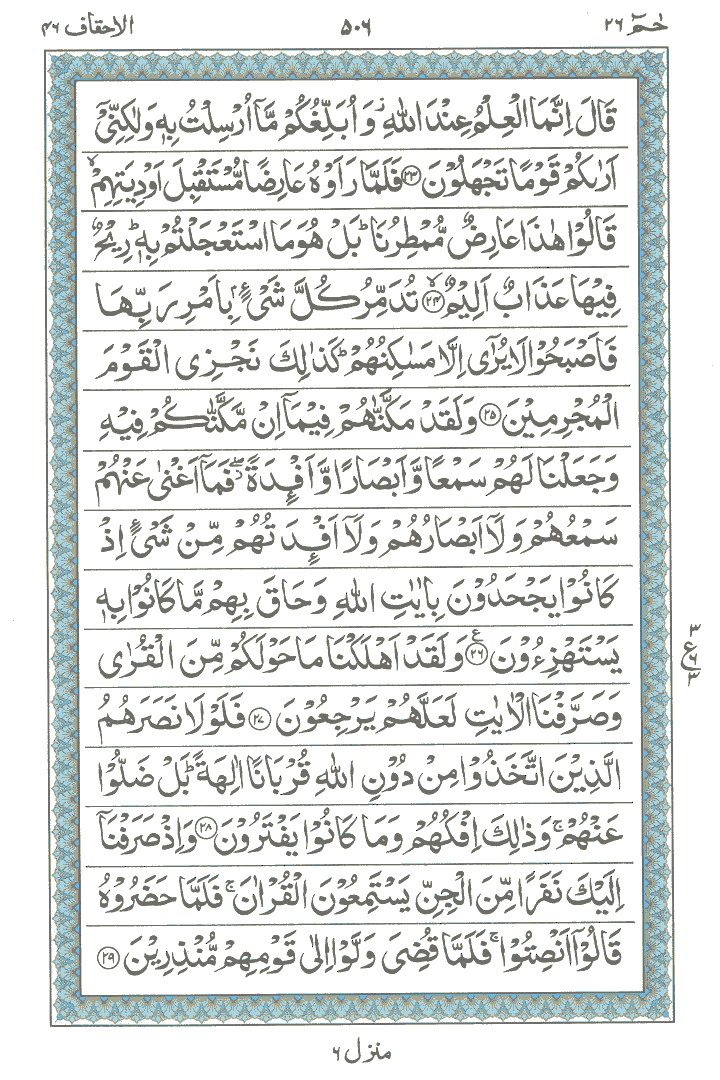 حٰمٓ ٢٦ ٥٠٦ الاحقاف ٤٦
قَالَ اِنَّمَا الْعِلْمُ عِنْدَ اللّٰهِ ۖ وَ اُبَلِّغُكُمْ مَّاۤ اُرْسِلْتُ بِهٖ وَلٰكِنِّیْۤ
اَرٰىكُمْ قَوْمًا تَجْهَلُوْنَ ﴿۲۳﴾ فَلَمَّا رَاَوْهُ عَارِضًا مُّسْتَقْبِلَ اَوْدِیَتِهِمْ ۙ
قَالُوْا هٰذَا عَارِضٌ مُّمْطِرُنَا ؕ بَلْ هُوَ مَا اسْتَعْجَلْتُمْ بِهٖ ؕ رِیْحٌ
فِیْهَا عَذَابٌ اَلِیْمٌ ﴿ۙ۲۴﴾ تُدَمِّرُ كُلَّ شَیْءٍۭ بِاَمْرِ رَبِّهَا
فَاَصْبَحُوْا لَا یُرٰۤی اِلَّا مَسٰكِنُهُمْ ؕ كَذٰلِكَ نَجْزِی الْقَوْمَ
الْمُجْرِمِیْنَ ﴿۲۵﴾ وَلَقَدْ مَكَّنّٰهُمْ فِیْمَاۤ اِنْ مَّكَّنّٰكُمْ فِیْهِ
وَجَعَلْنَا لَهُمْ سَمْعًا وَّاَبْصَارًا وَّاَفْـِٕدَةً ۖؗ فَمَاۤ اَغْنٰی عَنْهُمْ
سَمْعُهُمْ وَلَاۤ اَبْصَارُهُمْ وَلَاۤ اَفْـِٕدَتُهُمْ مِّنْ شَیْءٍ اِذْ
كَانُوْا یَجْحَدُوْنَ بِاٰیٰتِ اللّٰهِ وَحَاقَ بِهِمْ مَّا كَانُوْا بِهٖ
یَسْتَهْزِءُوْنَ ﴿۲۶﴾ ع وَلَقَدْ اَهْلَكْنَا مَا حَوْلَكُمْ مِّنَ الْقُرٰی
٣ ع ٦ ٣
وَصَرَّفْنَا الْاٰیٰتِ لَعَلَّهُمْ یَرْجِعُوْنَ ﴿۲۷﴾ فَلَوْلَا نَصَرَهُمُ
الَّذِیْنَ اتَّخَذُوْا مِنْ دُوْنِ اللّٰهِ قُرْبَانًا اٰلِهَةً ؕ بَلْ ضَلُّوْا
عَنْهُمْ ۚ وَذٰلِكَ اِفْكُهُمْ وَمَا كَانُوْا یَفْتَرُوْنَ ﴿۲۸﴾ وَاِذْ صَرَفْنَاۤ
اِلَیْكَ نَفَرًا مِّنَ الْجِنِّ یَسْتَمِعُوْنَ الْقُرْاٰنَ ۚ فَلَمَّا حَضَرُوْهُ
قَالُوْۤا اَنْصِتُوْا ۚ فَلَمَّا قُضِیَ وَلَّوْا اِلٰی قَوْمِهِمْ مُّنْذِرِیْنَ ﴿۲۹﴾
منزل ٦